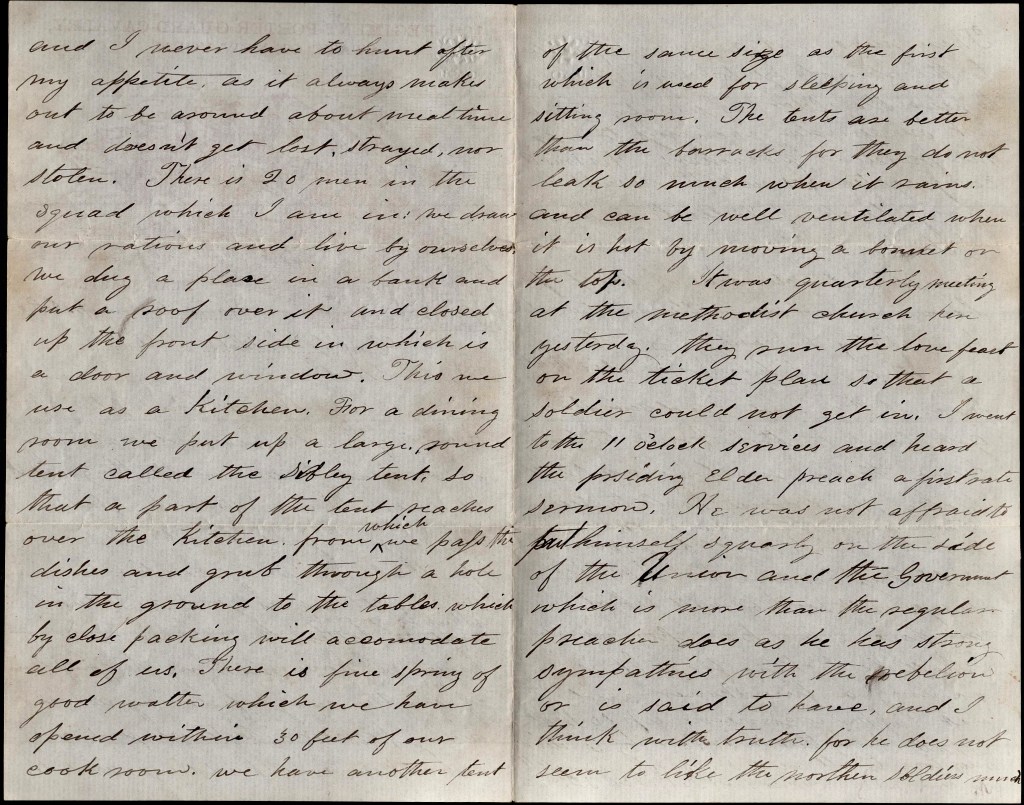 and I never have to hunt after
my appetite, as it always makes
out to be around about meal time
and doesn't get lost, strayed, nor
stolen. There is 20 men in the
squad which I am in: we draw
our rations and live by ourselves.
we dug a place in a bank and
put a roof over it and closed
up the front side in which is
a door and window. This we
use as a Kitchen. For a dining
room we put up a large, round
tent called the Sibley tent, so
that a part of the tent reaches
over the Kitchen. from which we pass the
dishes and grub through a hole
in the ground to the tables which
by close packing will accomodate
all of us. There is fine spring of
good watter which we have
opened within 30 feet of our
cook room. we have another tent
of the same size as the first
which is used for sleeping and
sitting room. The tents are better
than the barracks for they do not
leak so much when it rains.
and can be well ventilated when
it is hot by moving a bonnet on
the top. It was quarterly meeting
at the methodist church here
yesterday. they run the love feast
on the ticket plan so that a
soldier could not get in. I went
to the 11 oclock services and heard
the presiding Elder preach a first rate
sermon. He was not affraid to
put himself squarly on the side
of the Union and the Goverment
which is more than the regular
preacher does as he has strong
sympathies with the rebelion
or is said to have, and I
think with truth. for he does not
seem to like the northen soldiers much